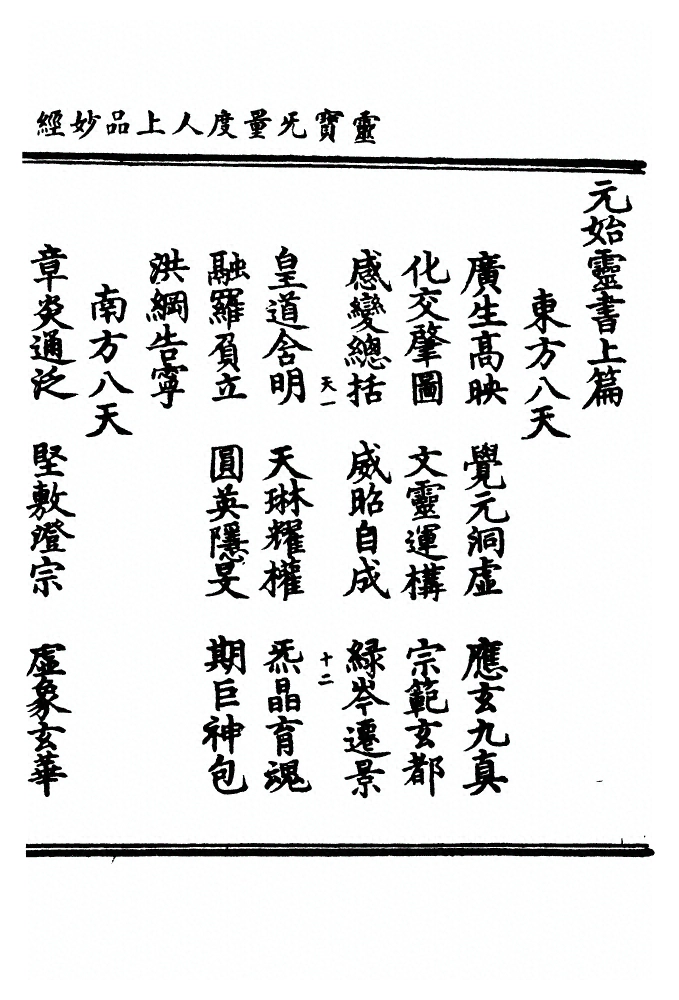 靈寶无量度人上品妙經
元始靈書上篇
東方八天
廣生高映 覺元洞虛 應玄九真
化交肇圖 文靈運構 宗範玄都
感變總括 威昭自成 綠岑遷景
天一 十二
皇道含明 天琳耀權 炁晶育魂
融羅負立 圓英隱旻 期巨神包
洪綱告寧
南方八天
章炎通泛 堅敷澄宗 虛象玄華